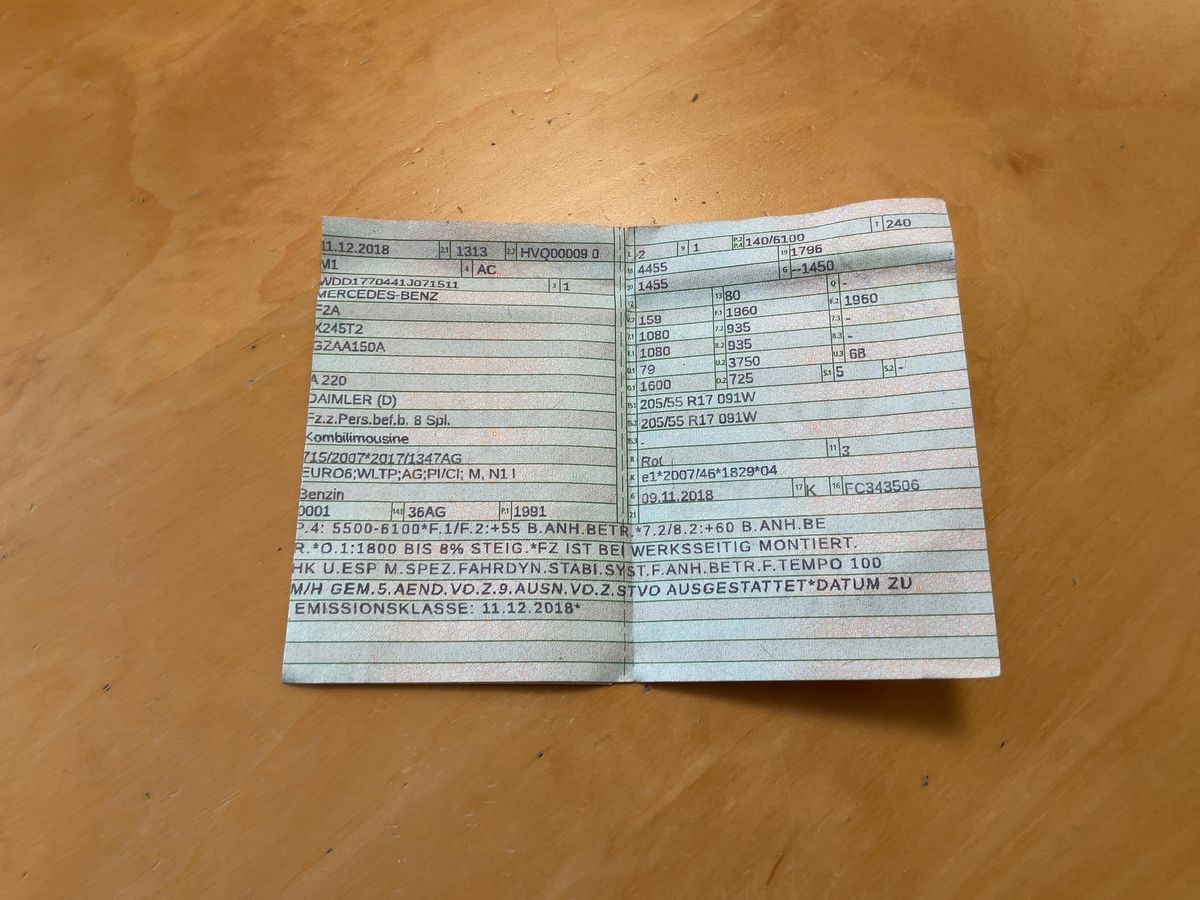 11.12.2018 2.1 1313 2.2 HVQ00009 0
M1 4 AC
WDD1770441J071511 3 1
MERCEDES-BENZ
F2A
X245T2
GZAA150A
A 220
DAIMLER (D)
Fz.z.Pers.bef.b. 8 Spl.
Kombilimousine
715/2007*2017/1347AG
EURO6;WLTP;AG;PI/CI; M, N1 I
Benzin
0001 14.1 36AG P.1 1991
L 2 9 1 P.2 P.4 140/6100 T 240
18 4455 19 1796
20 1455 G --1450
12 13 80 Q -
V.7 159 F.1 1960 F.2 1960
7.1 1080 7.2 935 7.3 -
8.1 1080 8.2 935 8.3 -
U.1 79 U.2 3750 U.3 68
O.1 1600 O.2 725 S.1 5 S.2 -
15.1 205/55 R17 091W
15.2 205/55 R17 091W
15.3 -
R Rot 11 3
K e1*2007/46*1829*04
6 09.11.2018 17 K 16 FC343506
21
P.4: 5500-6100*F.1/F.2:+55 B.ANH.BETR.*7.2/8.2:+60 B.ANH.BE
R.*O.1:1800 BIS 8% STEIG.*FZ IST BEI WERKSSEITIG MONTIERT.
HK U.ESP M.SPEZ.FAHRDYN.STABI.SYST.F.ANH.BETR.F.TEMPO 100
M/H GEM.5.AEND.VO.Z.9.AUSN.VO.Z.STVO AUSGESTATTET*DATUM ZU
EMISSIONSKLASSE: 11.12.2018*